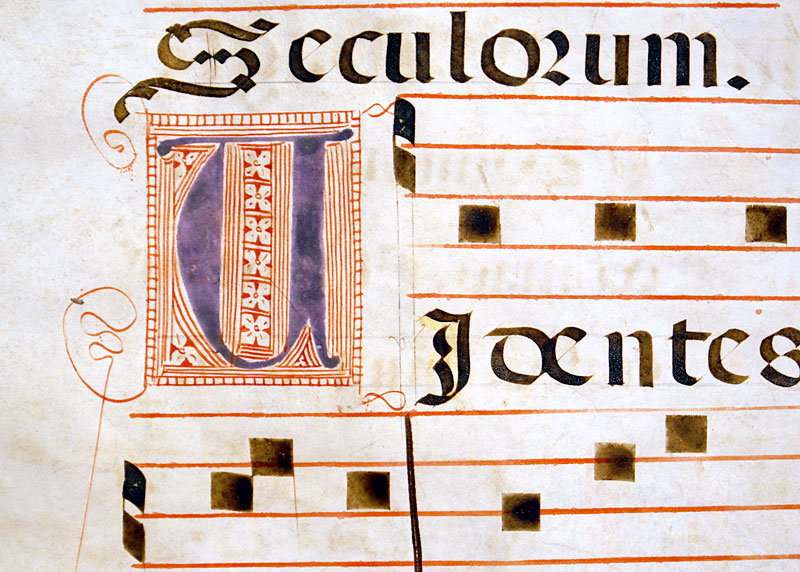 Seculorum.
UIdentes